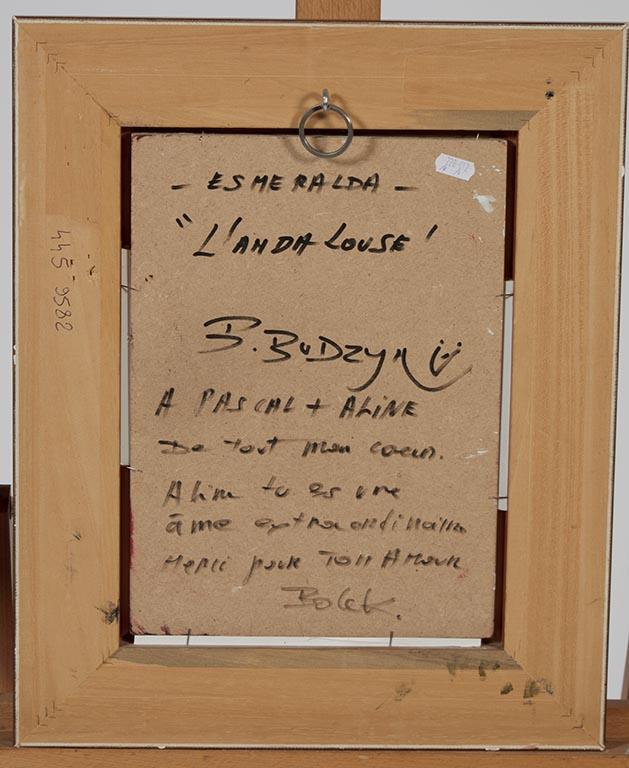 - ESMERALDA -
"L'ANDALOUSE'
B. BUDZYN
A PASCAL + ALINE
De tout mon coeur.
Aline tu es une
âme extraordinaire
Merci pour TON AMOUR
BOLEK.
445 9582